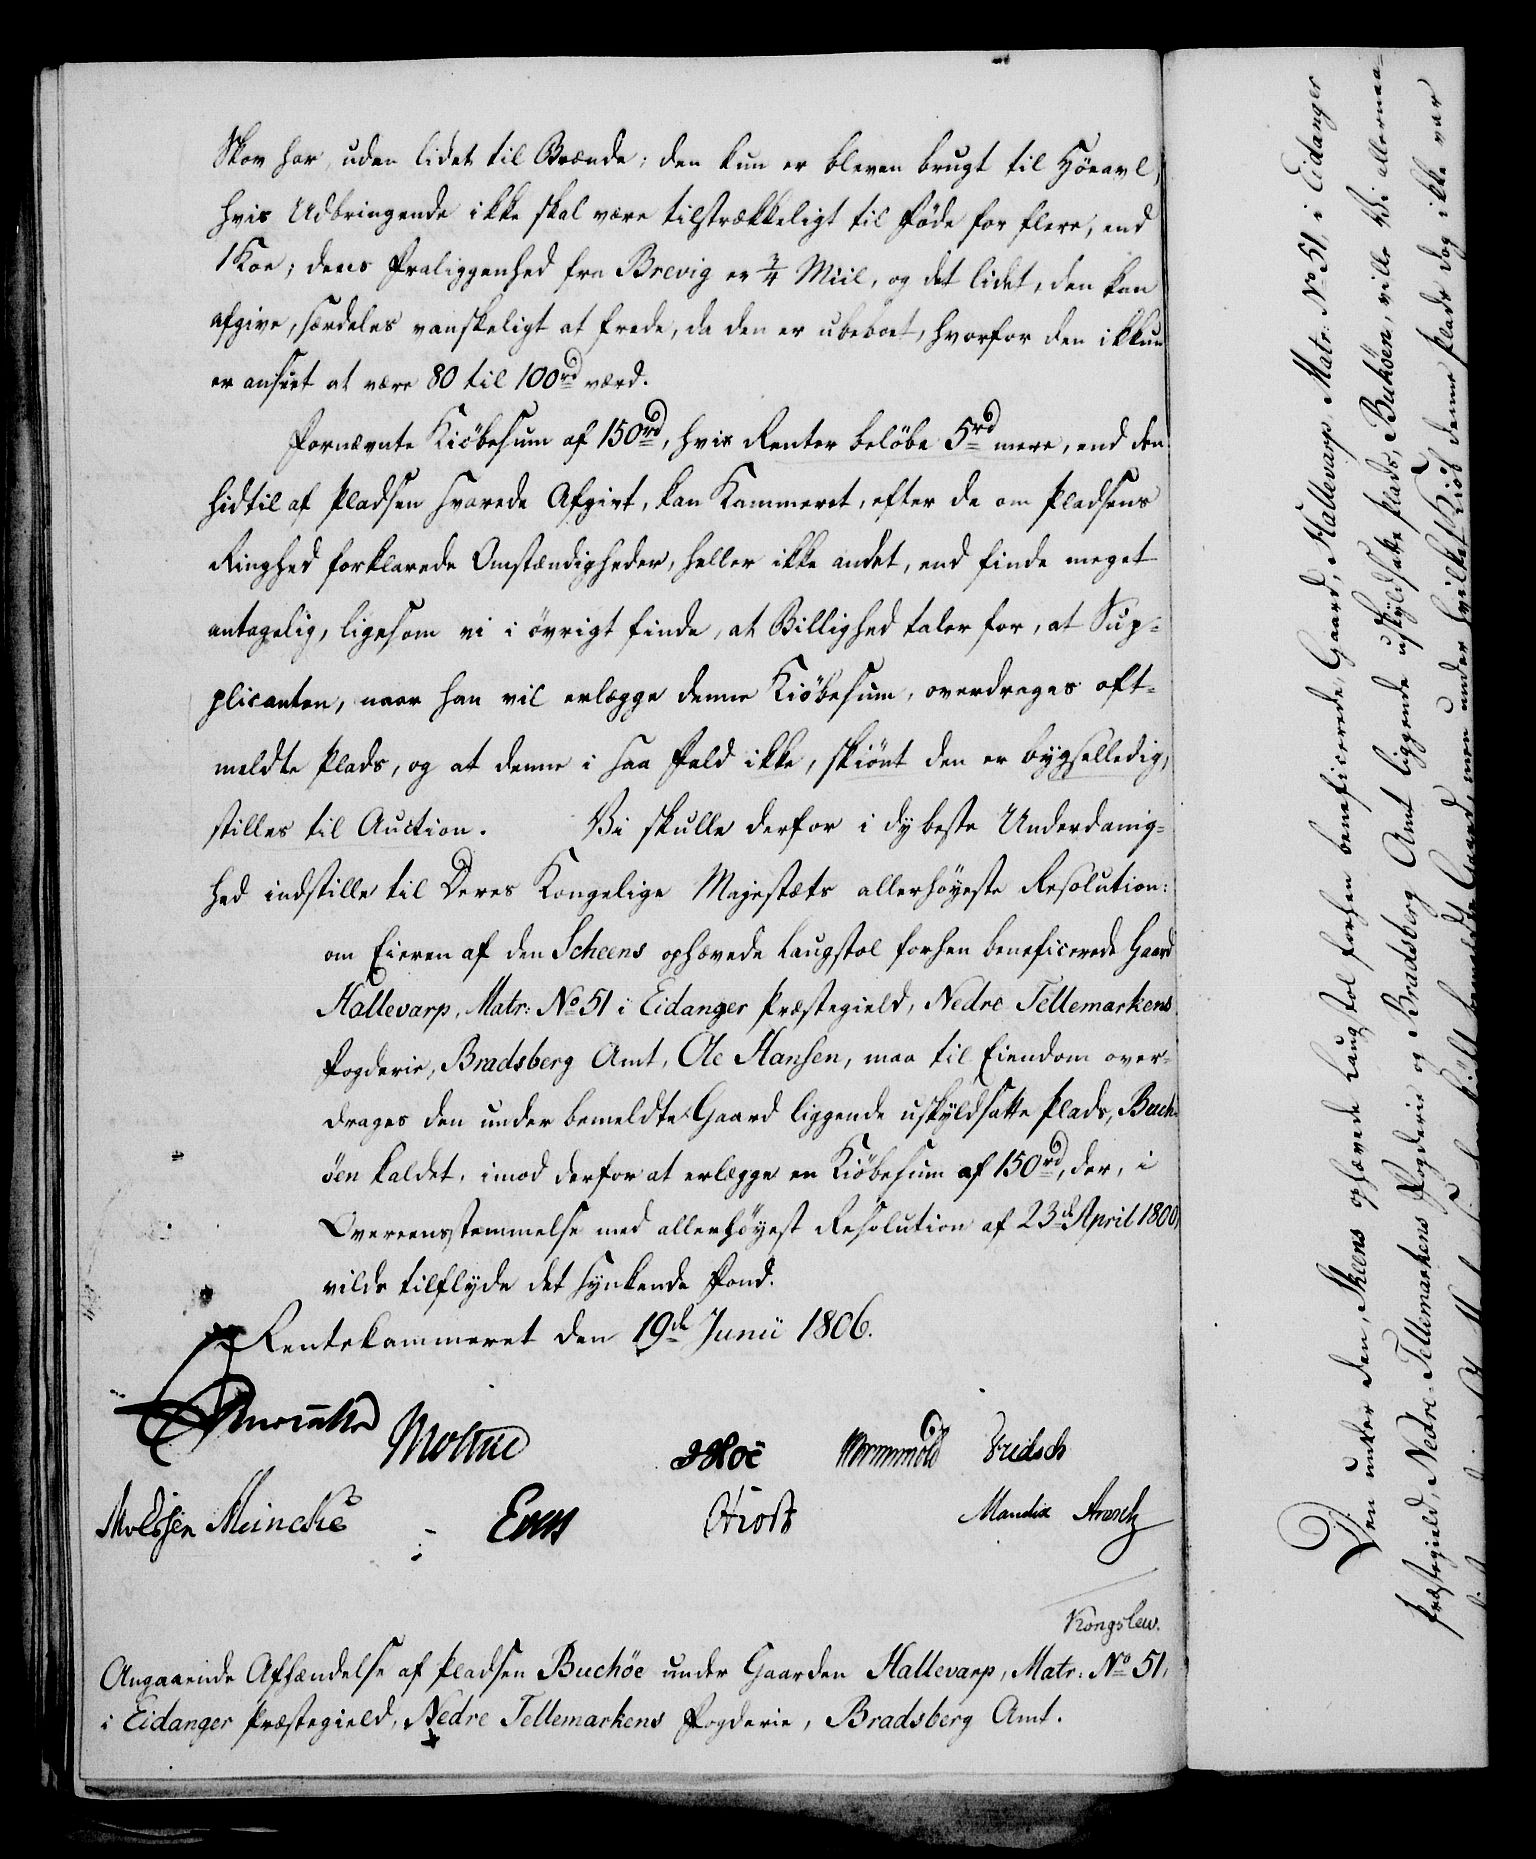 Skov har, uden lidet til Brænde; den kun er bleven brugt til Höeavl,
hvis Udbringende ikke skal være tilstrækkeligt til Föde for flere, end
1 Koe; dens Fraliggenhed fra Brevig er 3/4 Miil, og det lidet, den kan
afgive, særdeles vanskeligt at frede, da den er ubeboet, hvorfor den ikkun
er anseet at være 80 til 100rd værd.
Fornævnte Kiöbesum af 150rd, hvis Renter belöbe 5rd mere, end den
hidtil af Pladsen svarede Afgivt, kan Kammeret, efter de om Pladsens
Ringhed forklarede Omstændigheder, heller ikke andet, end finde meget
antagelig, ligesom vi i övrigt finde, at Billighed taler for, at Sup-
plicanten, naar han vil erlægge denne Kiöbesum, overdrages oft-
meldte Plads, og at denne i saa Fald ikke, skiönt den er bygselledig,
stilles til Auction. Vi skulle derfor i dybeste Underdanig-
hed indstille til Deres Kongelige Majestæts allerhöyeste Resolution:
om Eieren af den Scheens ophævede Laugstol forhen beneficerede Gaard
Hallevarp, Matr: No 51 i Eidanger Præstegield, Nedre Tellemarkens
Fogderie, Bradsberg Amt, Ole Hansen, maa til Eiendom over-
drages den under bemeldte Gaard liggende uskyldsatte Plads, Buch-
öen kaldet, imod derfor at erlægge en Kiöbesum af 150rd, der, i
Overeensstemmelse med allerhöyest Resolution af 23d April 1800,
vilde tilflyde det synkende Fond.
Rentekammeret den 19d Junii 1806.
Wormskiold Fridsch
Meincke
Mandix
Kongslew.
Angaaende Afhændelse af Pladsen Buchöe under Gaarden Hallevarp, Matr: No 51,
i Eidanger Præstegield, Nedre Tellemarkens Fogderie, Bradsberg Amt.
Den under den, Skeens ophævede Laugstol forhen beneficerede, Gaard, Hallevarp, Matr: No 51, i Eidanger
Præstegield, Nedre-Tellemarkens Fogderie og Bradsberg Amt liggende uskyldsatte Plads, Buköen, ville Vi allernaa-